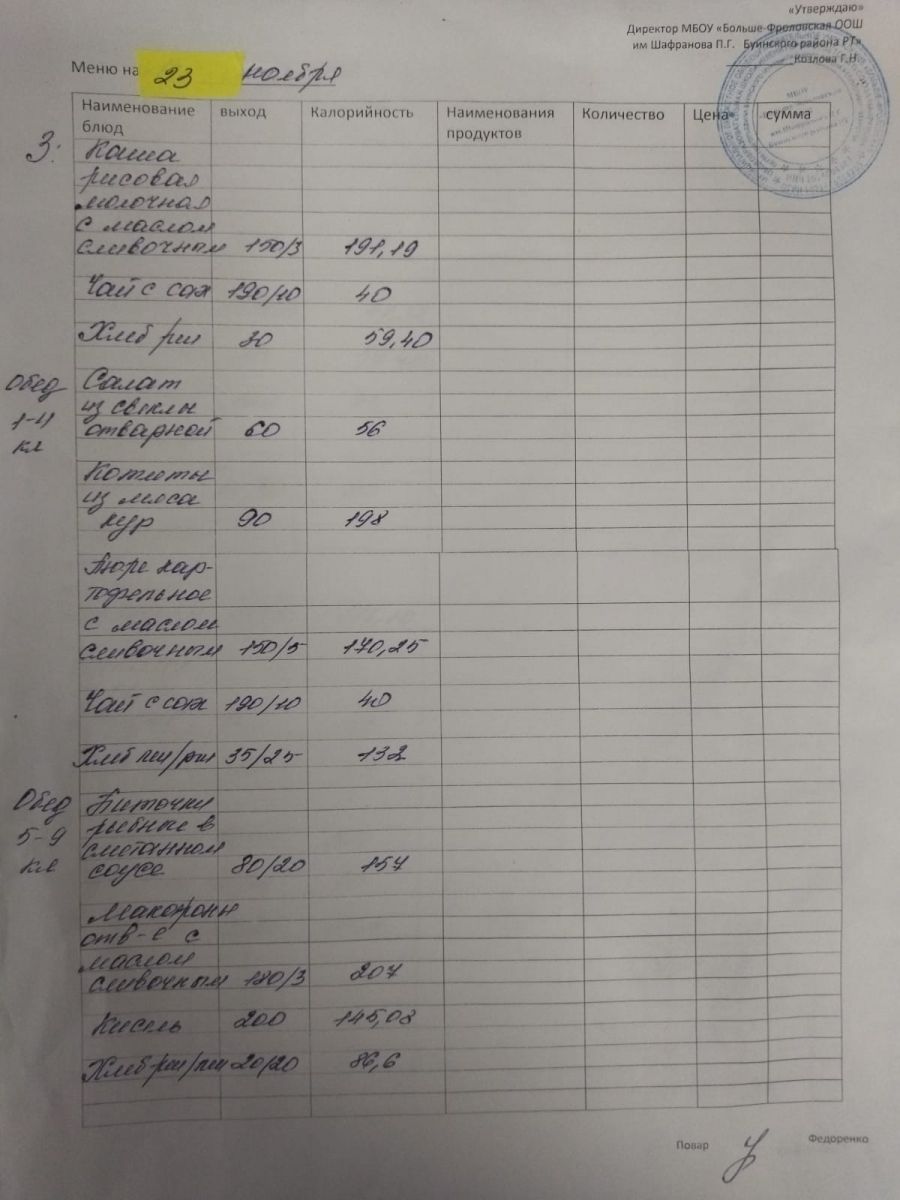 «Утверждаю»
Директор МБОУ «Больше-Фроловская ООШ
им Шафранова П.Г. Буинского района РТ»
Козлова Г.Н.
Меню на 23 ноября
Наименование блюд выход Калорийность Наименования продуктов Количество Цена сумма
З:
Каша
рисовая
молочная
с маслом
сливочным 150/3 191,19
Чай с сах 190/10 40
Хлеб рж 30 59,40
Обед
1-4
кл
Салат
из свеклы
отварной 60 56
Котлеты
из мяса
кур 90 198
Пюре кар-
тофельное
с маслом
сливочным 150/5 170,25
Чай с сах 190/10 40
Хлеб пш/рж 35/25 132
Обед
5-9
кл
Биточки
рыбные в
сметанном
соусе 80/20 157
Макароны
отв-е с
маслом
сливочным 180/3 207
Кисель 200 145,08
Хлеб рж/пш 20/20 86,6
Повар Федоренко